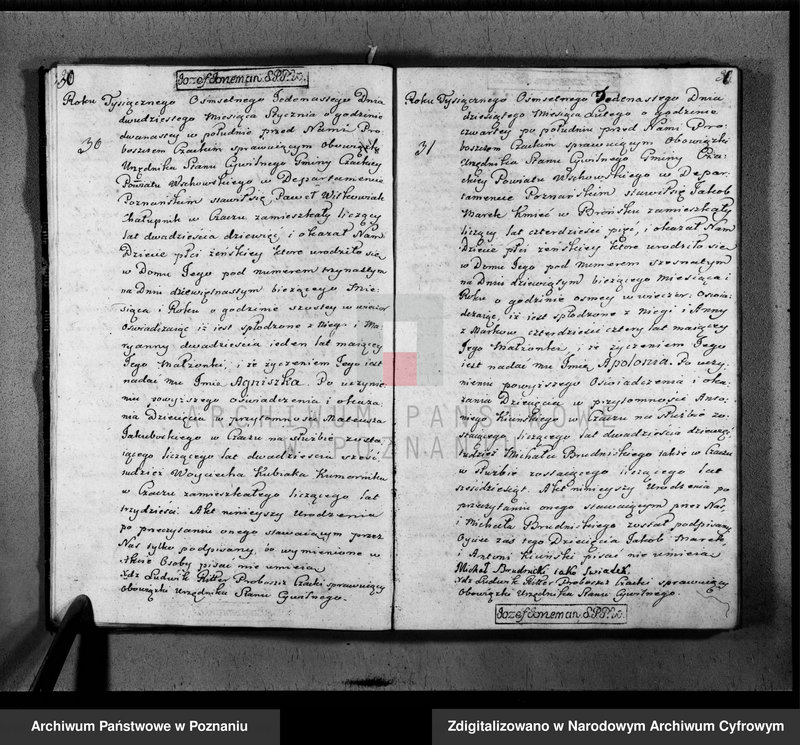 30
Jozef Joneman S.P.P.W.
Roku Tysiącznego Osmsetnego Jedenastego Dnia
dwudziestego Miesiąca Stycznia o godzinie
30
dwanastey w południe przed Nami Pro-
boszczem Czackim sprawuiącym Obowiązki
Urzędnika Stanu Cywilnego Gminy Czackiey
Powiatu Wschowskiego w Departamencie
Poznańskim stawił się Paweł Witkowiak
Chałupnik w Czaczu zamieszkały liczący
lat dwadzieścia dziewięć, i okazał Nam
Dziecie płci żeńskiey ktore urodziło się
w Domu Jego pod numerem trzynastym
na Dniu dziewiętnastym bieżącego Mie-
siąca i Roku o godzinie szostey w wieczor
Oświadczaiąc iż iest spłodzone z Niego i Ma-
ryanny dwadzieścia ieden lat maiącey
Jego Małzonki, i że życzeniem Jego iest
nadać mu Imie Agniszka. Po uczynie-
niu powyższego oświadczenia i okaza-
nia Dziecięcia w przytomności Mateusza
Jakubockiego w Czaczu na służbie zosta-
iącego liczącego lat dwadzieścia sześć,
tudzież Woyciecha Kubiaka Komornika
w Czaczu zamieszkałego liczącego lat
trzydzieści. Akt ninieyszy Urodzenia
po przeczytaniu onego stawaiącym przez
Nas tylko podpisany, bo wymienione w
Akcie Osoby pisać nie umieią
Xdz Ludwik Ritter Proboszcz Czacki sprawuiący
Obowiązki Urzędnika Stanu Cywilnego.
31
Roku Tysiącznego Osmsetnego Jedenastego Dnia
dziesiątego Miesiąca Lutego o godzinie
czwartey po południu przed Nami Pro-
31
boszczem Czackim sprawuiącym Obowiązki
Urzędnika Stanu Cywilnego Gminy Cza-
ckiey Powiatu Wschowskiego w Depar-
tamencie Poznańskim stawił się Jakob
Marek Kmieć w Brońsku zamieszkały
liczący lat czterdzieści pięć, i okazał Nam
Dziecie płci żeńskiey ktore urodziło się
w Domu Jego pod numerem szesnastym
na Dniu dziewiątym bieżącego Miesiąca i
Roku o godzinie osmey w wieczor. Oświa-
dczaiąc, iż iest spłodzone z Niego i Anny
z Markow czterdzieści cztery lat maiącey
Jego Małzonki, i że życzeniem Jego
iest nadać mu Imie Apolonia. Po uczy-
nieniu powyższego Oświadczenia i oka-
zania Dziecięcia w przytomności Anto-
niego Kiuńskiego w Czaczu na służbie zo-
staiącego liczącego lat dwadzieścia dziewięć
tudzież Michała Brudnickiego także w Czaczu
w służbie zostaiącego liczącego lat
sześćdziesiąt. Akt ninieyszy Urodzenia po
przeczytaniu onego stawaiącym przez Nas
i Michała Brudnickiego został podpisany
Oyciec zaś tego Dziecięcia Jakob Marek,
i Antoni Kiuński pisać nie umieią
Michał Brudnicki iako Swiadek
Xdz Ludwik Ritter Proboszcz Czacki sprawuiący
Obowiązki Urzędnika Stanu Cywilnego.
Jozef Joneman S.P.P.W.
ARCHIWUM PAŃSTWOWE
W POZNANIU
Archiwum Państwowe w Poznaniu
Zdigitalizowano w Narodowym Archiwum Cyfrowym